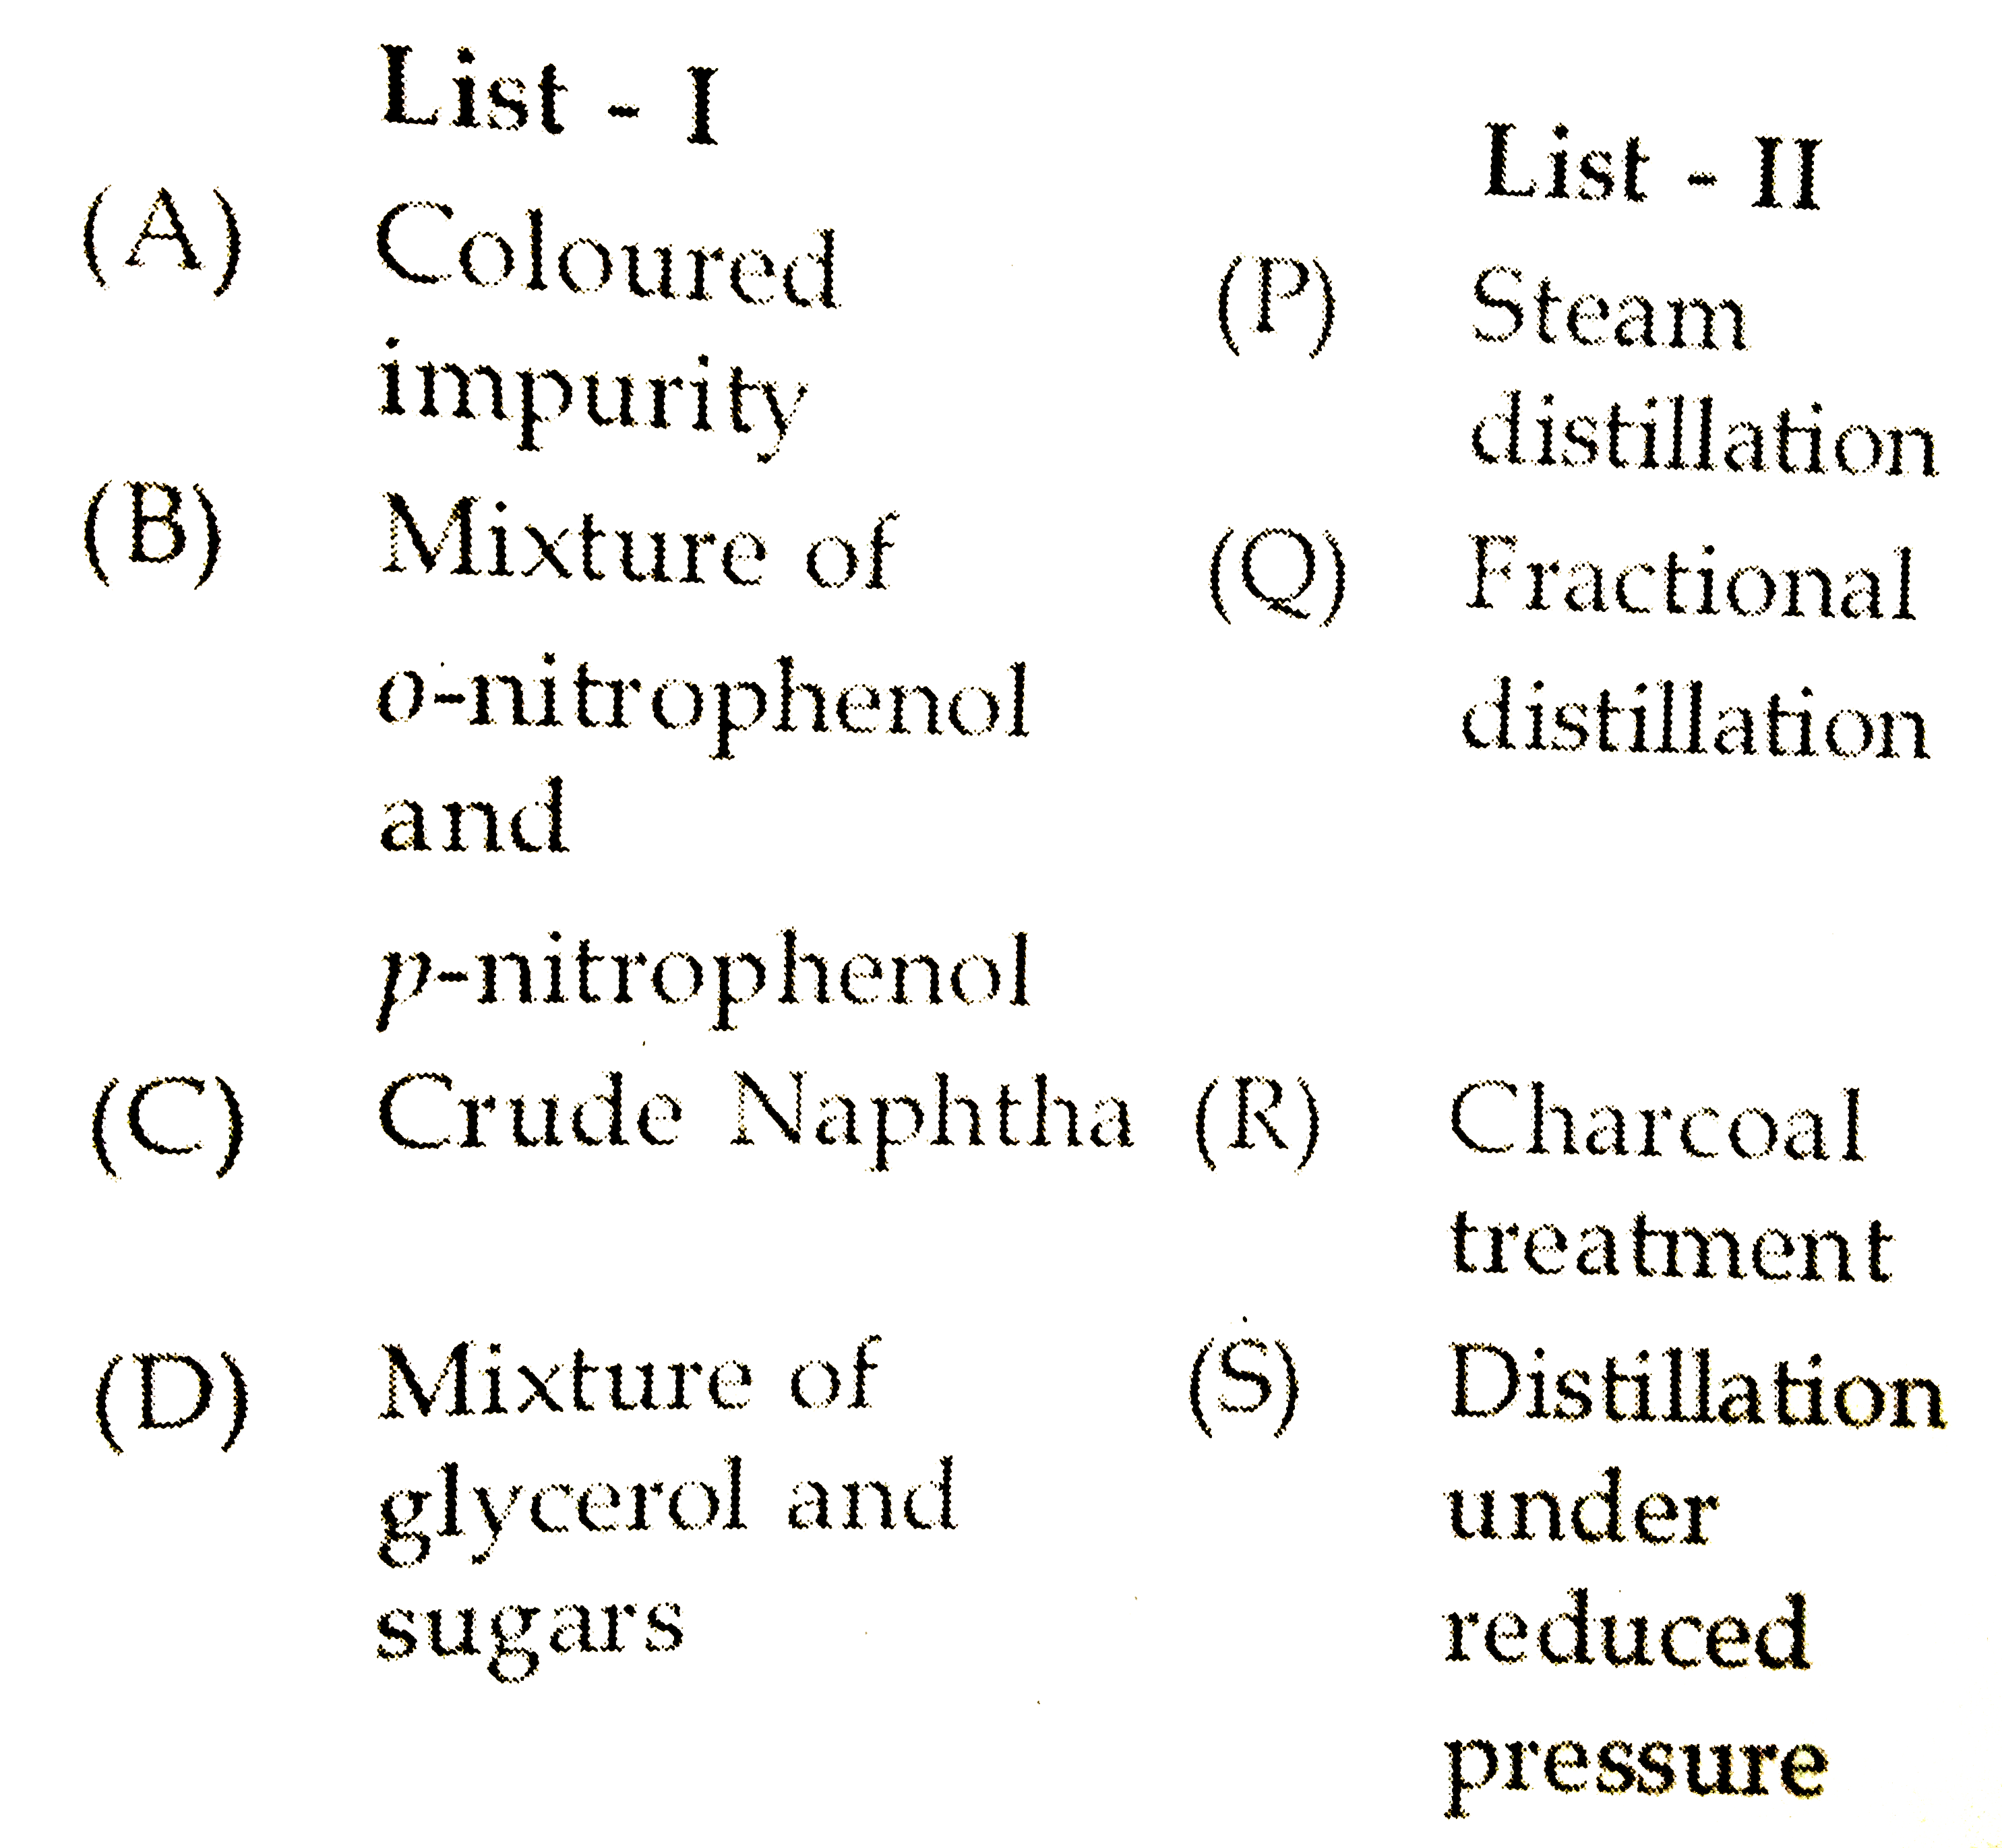 List - I
List - II
(A) Coloured
impurity
(P) Steam
distillation
(B) Mixture of
o-nitrophenol
and
p-nitrophenol
(Q) Fractional
distillation
(C) Crude Naphtha
(R) Charcoal
treatment
(D) Mixture of
glycerol and
sugars
(S) Distillation
under
reduced
pressure